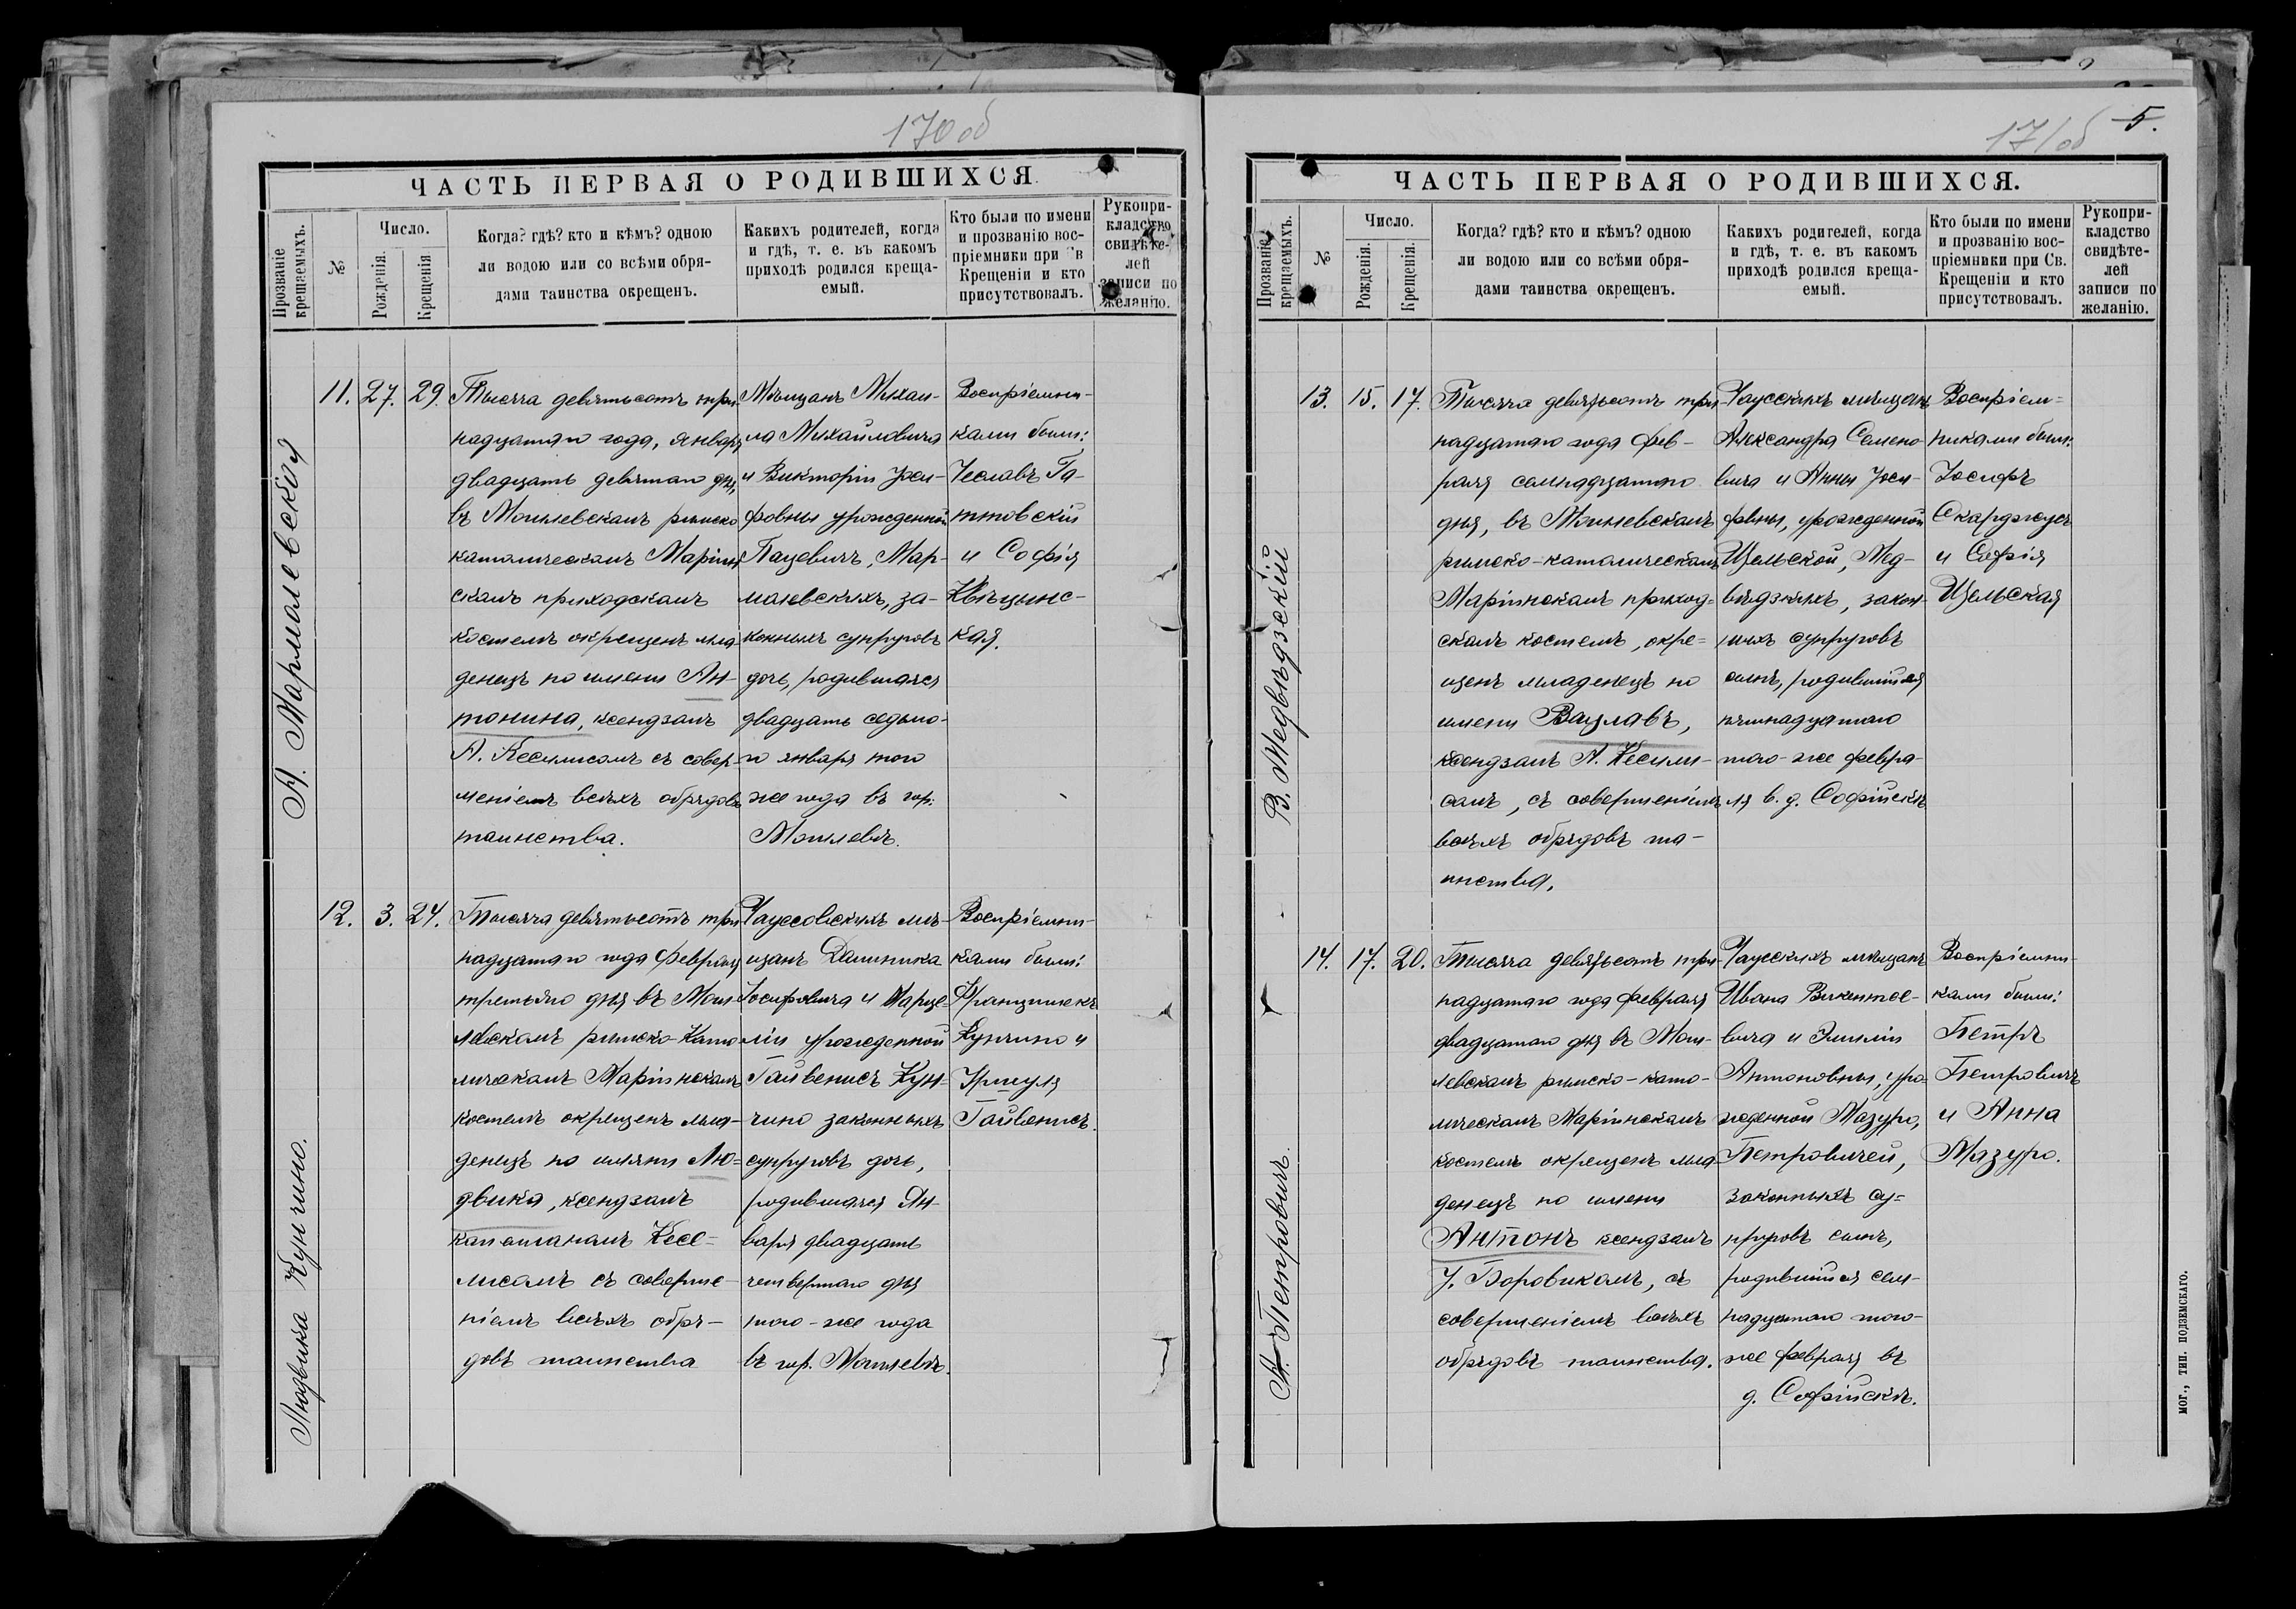 170 об
ЧАСТЬ ПЕРВАЯ О РОДИВШИХСЯ
Прозваніе крещаемыхъ.
№
Число.
Рожденія.
Крещенія
Когда? гдѣ? кто и кѣмъ? одною
ли водою или со всѣми обря-
дами таинства окрещенъ.
Какихъ родителей, когда
и гдѣ, т. е. въ какомъ
приходѣ родился креща-
емый.
Кто были по имени
и прозванію вос-
пріемники при в
Крещеніи и кто
присутствовалъ.
Рукопри-
кладство
свидѣте-
лей
записи по
желанію.
А. Мармалевская
11. 27. 29.
Тысяча девятьсотъ три-
надцатаго года, января
двадцать девятаго дня,
въ Могилевскомъ римско
католическомъ Маріин
скомъ приходскомъ
костелѣ окрещенъ мла-
денецъ по имени Ан-
тонина, ксендзомъ
А. Кесилисомъ съ совер-
шеніемъ всѣхъ обрядовъ
таинства.
Мѣщанъ Михаи-
ла Михайловича
и Викторіи Уоси-
фовны урожденной
Пацевичъ, Мар-
малевскихъ, за-
конныхъ супруговъ
дочь, родившаяся
двадцать седьмо-
го января того
же года въ гор.
Могилевѣ.
Воспріемни-
ками были:
Чеславъ Га-
ттовскій
и Софія
Квѣцинс-
кая.
Людвика Кунчино.
12. 3. 24.
Тысяча девятьсотъ три
надцатаго года Февраля
третьяго дня въ Моги-
левскомъ римско-Като
лическомъ Маріинскомъ
костелѣ окрещенъ мла-
денецъ по имени Лю=
двика, ксендзомъ
капеланомъ Кеси=
лисомъ съ соверше-
ніемъ всѣхъ обря-
довъ таинства
Чауссовскихъ мѣ-
щанъ Доминика
Іосифовича и Марце-
ліи урожденной
Гайвенисъ Кун-
чино законныхъ
супруговъ дочь,
родившаяся Ян-
варя двадцать
четвертаго дня
того-же года
въ гор. Могилевѣ.
Воспріемни-
ками были:
Францишекъ
Кунчино и
Уршуля
Гайвенисъ.
171 об
5.
ЧАСТЬ ПЕРВАЯ О РОДИВШИХСЯ.
Прозваніе крещаемыхъ.
№
Число.
Рожденія.
Крещенія.
Когда? гдѣ? кто и кѣмъ? одною
ли водою или со всѣми обря-
дами таинства окрещенъ.
Какихъ родителей, когда
и гдѣ, т. е. въ какомъ
приходѣ родился креща-
емый.
Кто были по имени
и прозванію вос-
пріемники при Св.
Крещеніи и кто
присутствовалъ.
Рукопри-
кладство
свидѣте-
лей
записи по
желанію.
В. Медвѣдзскій
13. 15. 17.
Тысяча девятьсотъ три
надцатаго года Фев-
раля семнадцатаго
дня, въ Могилевскомъ
римско-католическомъ
Маріинскомъ приход=
скомъ костелѣ, окре=
щенъ младенецъ по
имени Вацлавъ,
ксендзомъ А. Кесили-
сомъ, съ совершеніемъ
всѣхъ обрядовъ та-
инства.
Чаусскихъ мѣщанъ
Александра Семено-
вича и Анны Уоси-
фовны, урожденной
Цельской, Мед-
вѣдзкихъ, закон-
ныхъ супруговъ
сынъ, родившійся
пятнадцатаго
того-же февра-
ля в. д. Софійскѣ
Воспріем=
никами были:
Іосифъ
Скарджусъ
и Софія
Цельская
А. Петровичъ.
14. 17. 20.
Тысяча девятьсотъ три-
надцатаго года февраля
двадцатаго дня въ Моги-
левскомъ римско-като-
лическомъ Маріинскомъ
костелѣ окрещенъ мла-
денецъ по имени
Антонъ ксендзомъ
У. Боровикомъ, съ
совершеніемъ всѣхъ
обрядовъ таинства.
Чаусскихъ мѣщанъ
Ивана Викентое-
вича и Эмиліи
Антоновны, уро-
жденной Мазуро,
Петровичей,
законныхъ су=
пруговъ сынъ,
родившійся сем-
надцатаго того-
же февраля въ
д. Софійскѣ.
Воспріемни-
ками были:
Петръ
Петровичъ
и Анна
Мазуро.
МОГ., ТИП. ПОДЗЕМСКАГО.